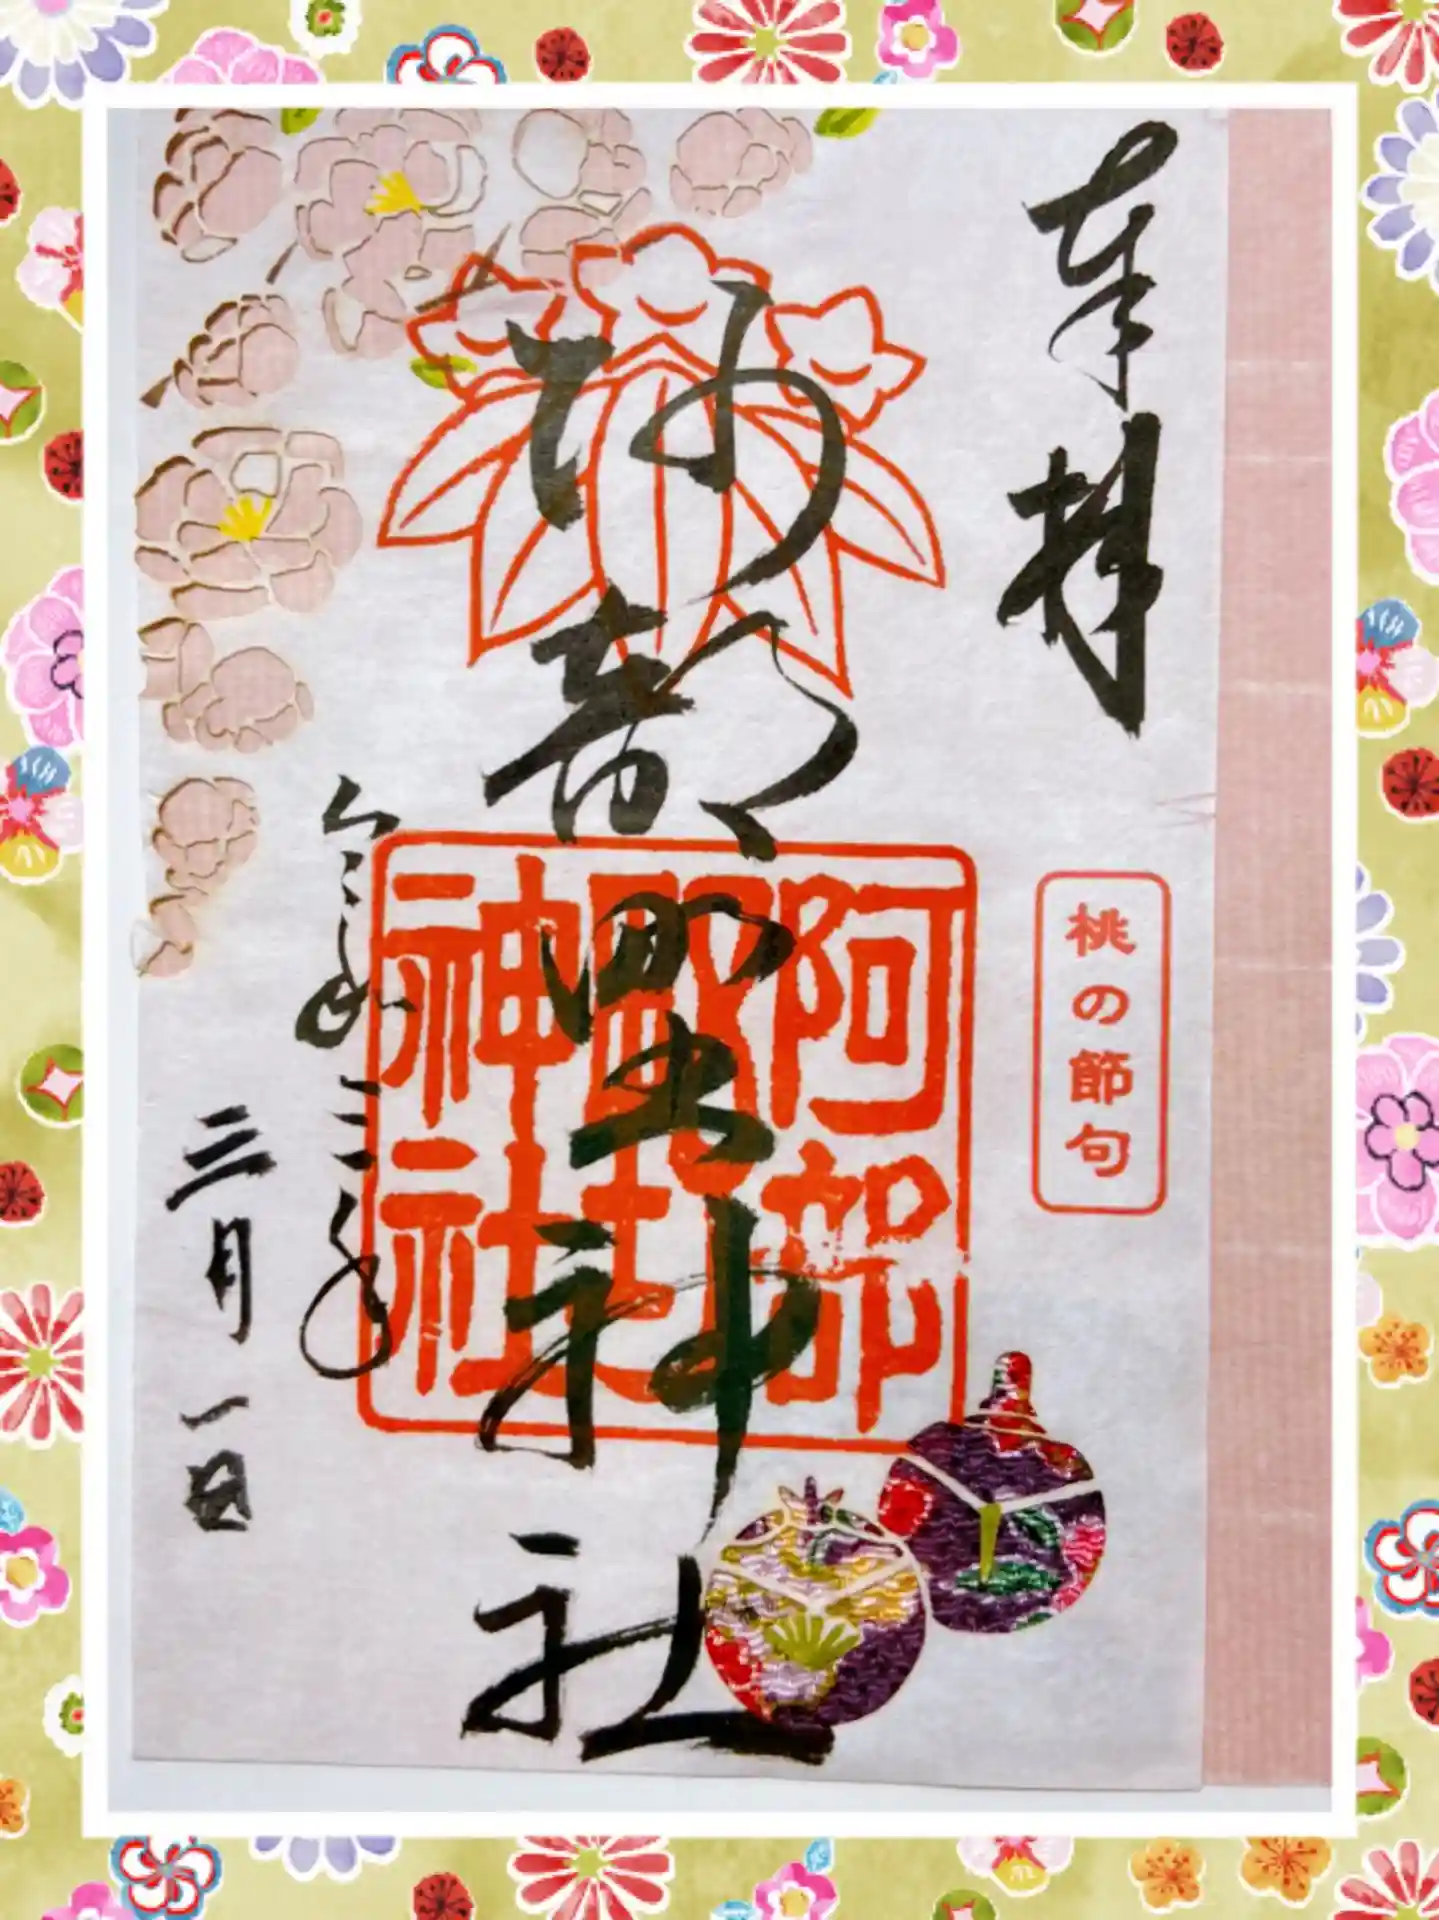 奉拝
桃の節句
阿部野神社
阿部野神社
令和三年
三月一日